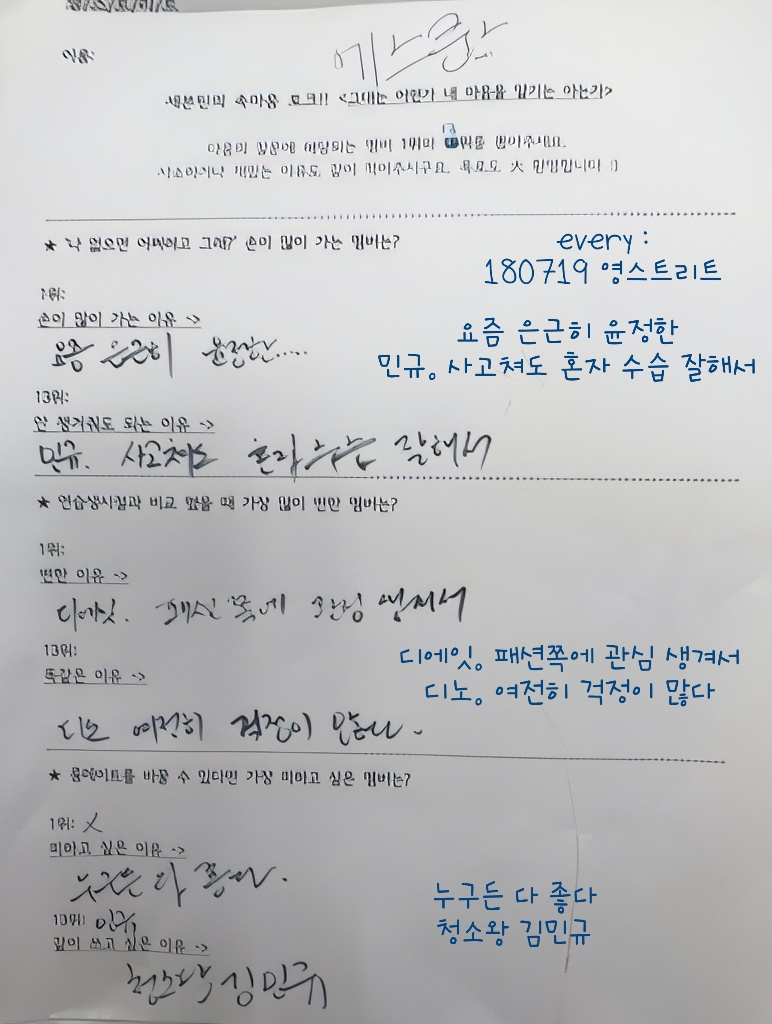 이름: 에스쿱스
세븐틴의 속마음 토크!! <그대는 어쩐가 내 마음을 알기는 아는가>
다음의 질문에 해당되는 멤버 1위와 13위를 뽑아주세요.
같이 적어주시구요. 목표도 大 환영입니다 :)
★ '나 없으면 어쩌려고 그래?' 손이 많이 가는 멤버는?
every :
180719 영스트리트
1위:
손이 많이 가는 이유 ->
요즘 은근히 윤정한.....
요즘 은근히 윤정한
민규。사고쳐도 혼자 수습 잘해서
13위:
안 챙겨줘도 되는 이유 ->
민규. 사고쳐도 혼자 수습 잘해서
★ 연습생시절과 비교 했을 때 가장 많이 변한 멤버는?
1위:
변한 이유 ->
디에잇. 패션 쪽에 관심 생겨서
13위:
똑같은 이유 ->
디에잇。패션쪽에 관심 생겨서
디노。여전히 걱정이 많다
디노 여전히 걱정이 많다.
★ 룸메이트를 바꿀 수 있다면 가장 피하고 싶은 멤버는?
1위: X
피하고 싶은 이유 ->
누구든 다 좋다.
누구든 다 좋다
청소왕 김민규
13위: 민규
같이 쓰고 싶은 이유 ->
청소왕 김민규